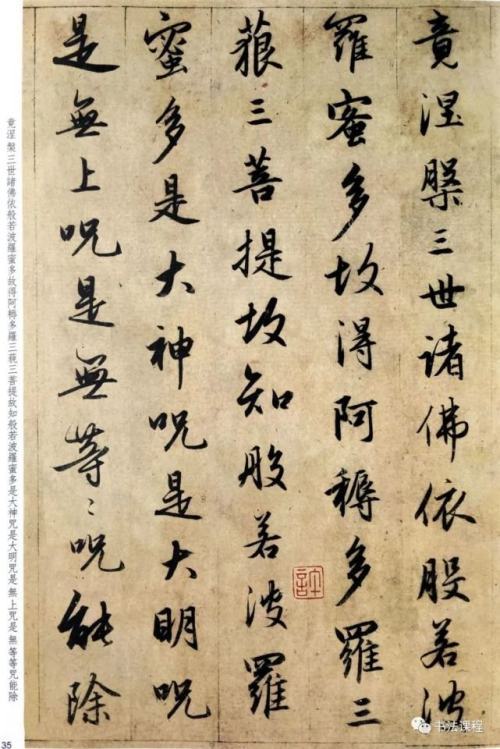 竟涅槃三世諸佛依般若波
羅蜜多故得阿耨多羅三
藐三菩提故知般若波羅
蜜多是大神咒是大明咒
是無上咒是無等〻咒能除
竟涅槃三世諸佛依般若波羅蜜多故得阿耨多羅三藐三菩提故知般若波羅蜜多是大神咒是大明咒是無上咒是無等等咒能除
35
书法课程